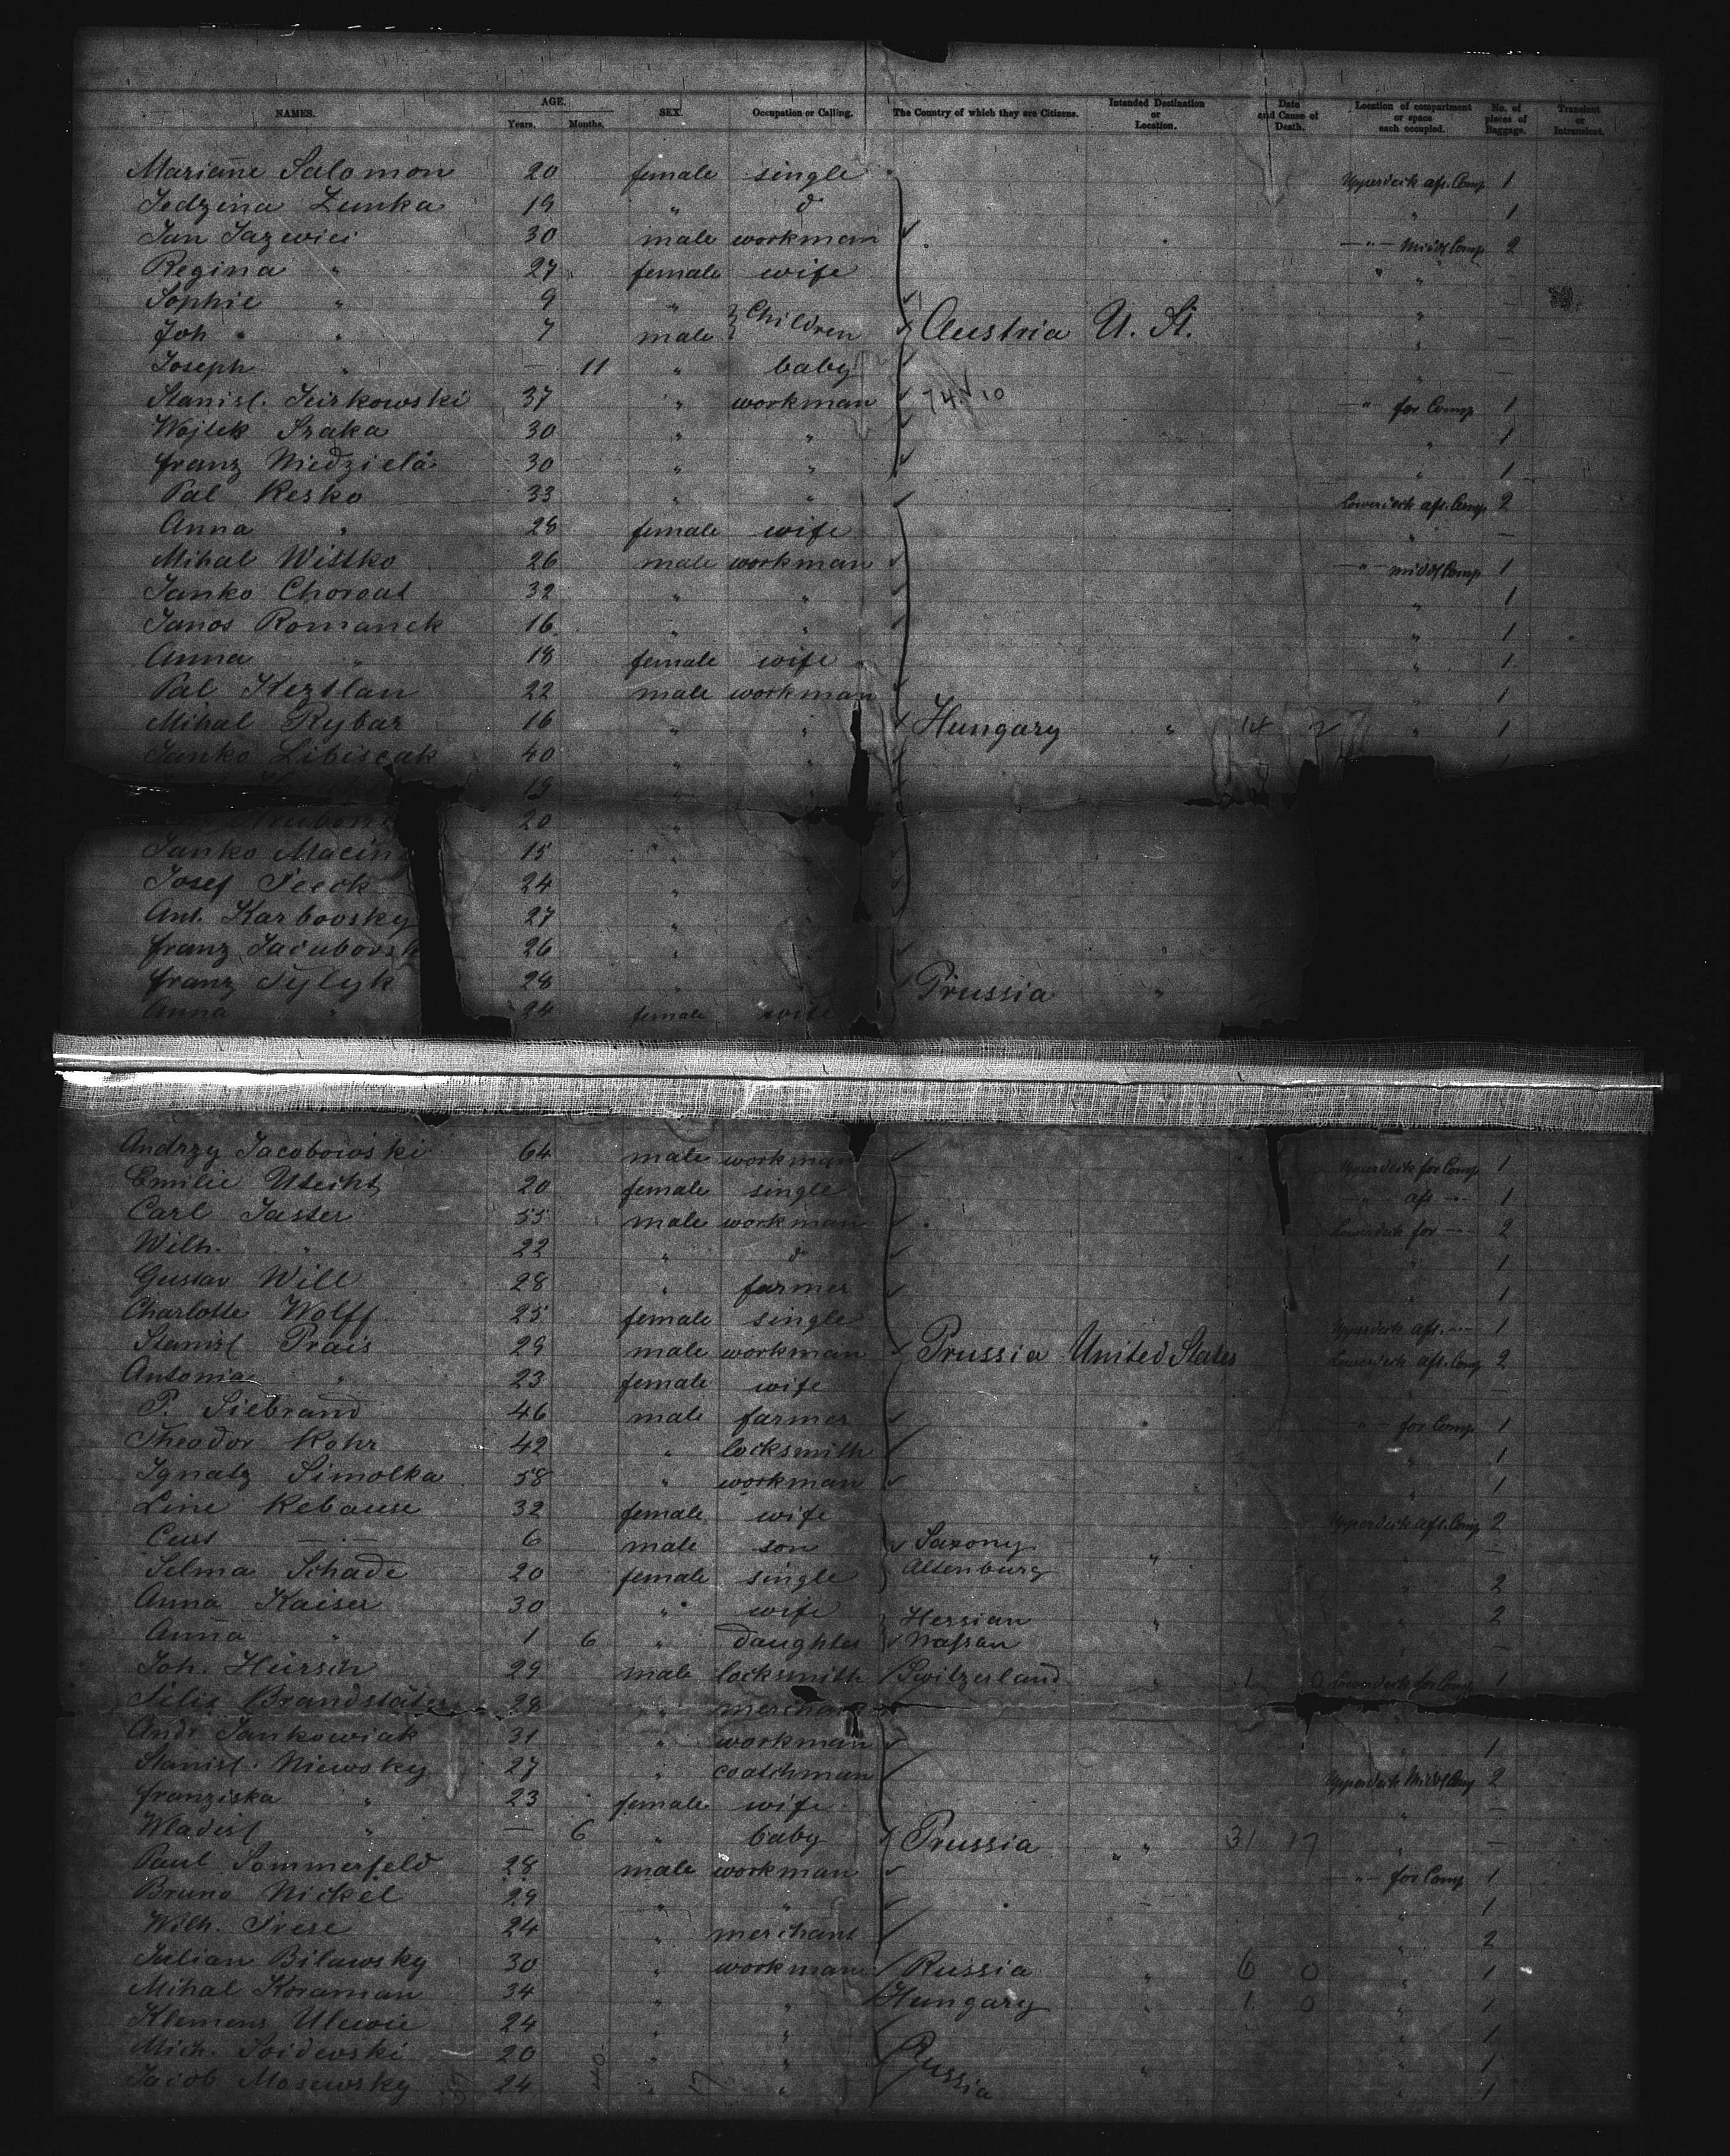 NAMES. AGE. Years. Months. SEX. Occupation or Calling. The Country of which they are Citizens. Intended Destination or Location. Date and Cause of Death. Location of compartment or space each occupied. No. of pieces of Baggage. Transient or Intransient.
Mariane Salomon 20 female single Upperdeck aft. Comp 1
Jedzina Zunka 19 " d " 1
Jan Jazewici 30 male workman " Middl Comp 2
Regina " 27 female wife "
Sophie " 9 " Children " —
Joh " 7 male Austria U. St. " —
Joseph " — 11 " baby " —
Stanisl. 37 " workman 74 10 " for Comp 1
Wojtek Sraka 30 " " " 1
Franz Niedziela 30 " " " 1
Pal Kesko 33 " " Lowerdeck aft. Comp 2
Anna " 28 female wife " —
Mihal Wittko 26 male workman " middl Comp 1
Janko Choroat 32 " " " 1
Janos Romanek 16 " " " 1
Anna " 18 female wife " 1
Pal Keztlan 22 male workman " 1
Mihal Rybar 16 " " Hungary " 14 2 " 1
Janko Libiscak 40 " "
19 "
20 "
Janko 15 "
Josef 24 "
Ant. Karbovsky 27 "
Franz 26 "
Franz Tylyk 28 " Prussia "
Anna " 24 female wife
Andrzy Jacobowski 64 male workman " Upperdeck for Comp 1
Emilie Utecht 20 female single " aft — 1
Carl Jaster 55 male workman Lowerdeck for — 2
Wilh. " 22 " d " 1
Gustav Will 28 " farmer " 1
Charlotte Wolff 25 female single Upperdeck aft. — 1
Stanisl Prais 29 male workman Prussia United States Lowerdeck aft. Comp 2
Antonia " 23 female wife " —
P. Siebrand 46 male farmer " for Comp 1
Theodor Rohr 42 " locksmith " 1
Ignatz Simolka 58 " workman " 1
Line Rebause 32 female wife Upperdeck aft. Comp 2
Curt — " — 6 male son Saxony " " —
Selma Schade 20 female single Altenburg " 2
Anna Kaiser 30 " wife Hessian " " 2
Anna " 1 6 " daughter Nassau —
Joh. Hürsch 29 male locksmith Switzerland " 1 0 Lowerdeck for Comp 1
Felix Brandstäter 28 " merchant
Andr Jankowiak 31 " workman " 1
Stanisl. Niewsky 27 " coatchman Upperdeck Middl Comp 2
Franziska " 23 female wife " —
Wladisl " — 6 " baby Prussia " " 31 17 " —
Paul Sommerfeld 28 male workman " for Comp 1
Bruno Nickel 29 " " " 1
Wilh. Frese 24 " merchant " 2
Julian Bilawsky 30 " workman Russia " 6 0 " 1
Mihal Koraman 34 " " Hungary " 1 0 " 1
Klemens Ulewie 24 " " " 1
Mich. Soidewski 20 " " Russia " " 1
Jacob Mosewsky 24 " " " 1